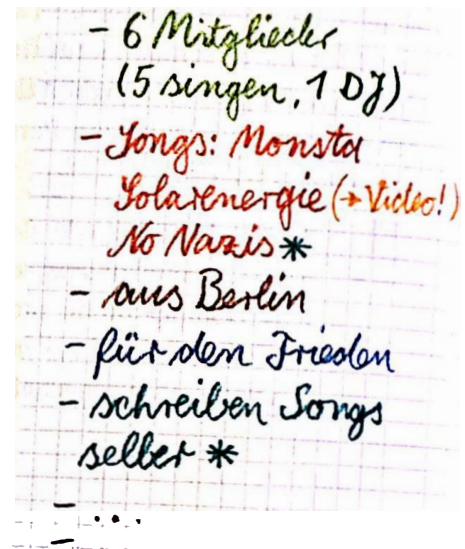 - 6 Mitglieder
(5 singen, 1 DJ)
- Songs: Monsta
Solarenergie (→ Video!)
No Nazis *
- aus Berlin
- für den Frieden
- schreiben Songs
selber *
- ...
-